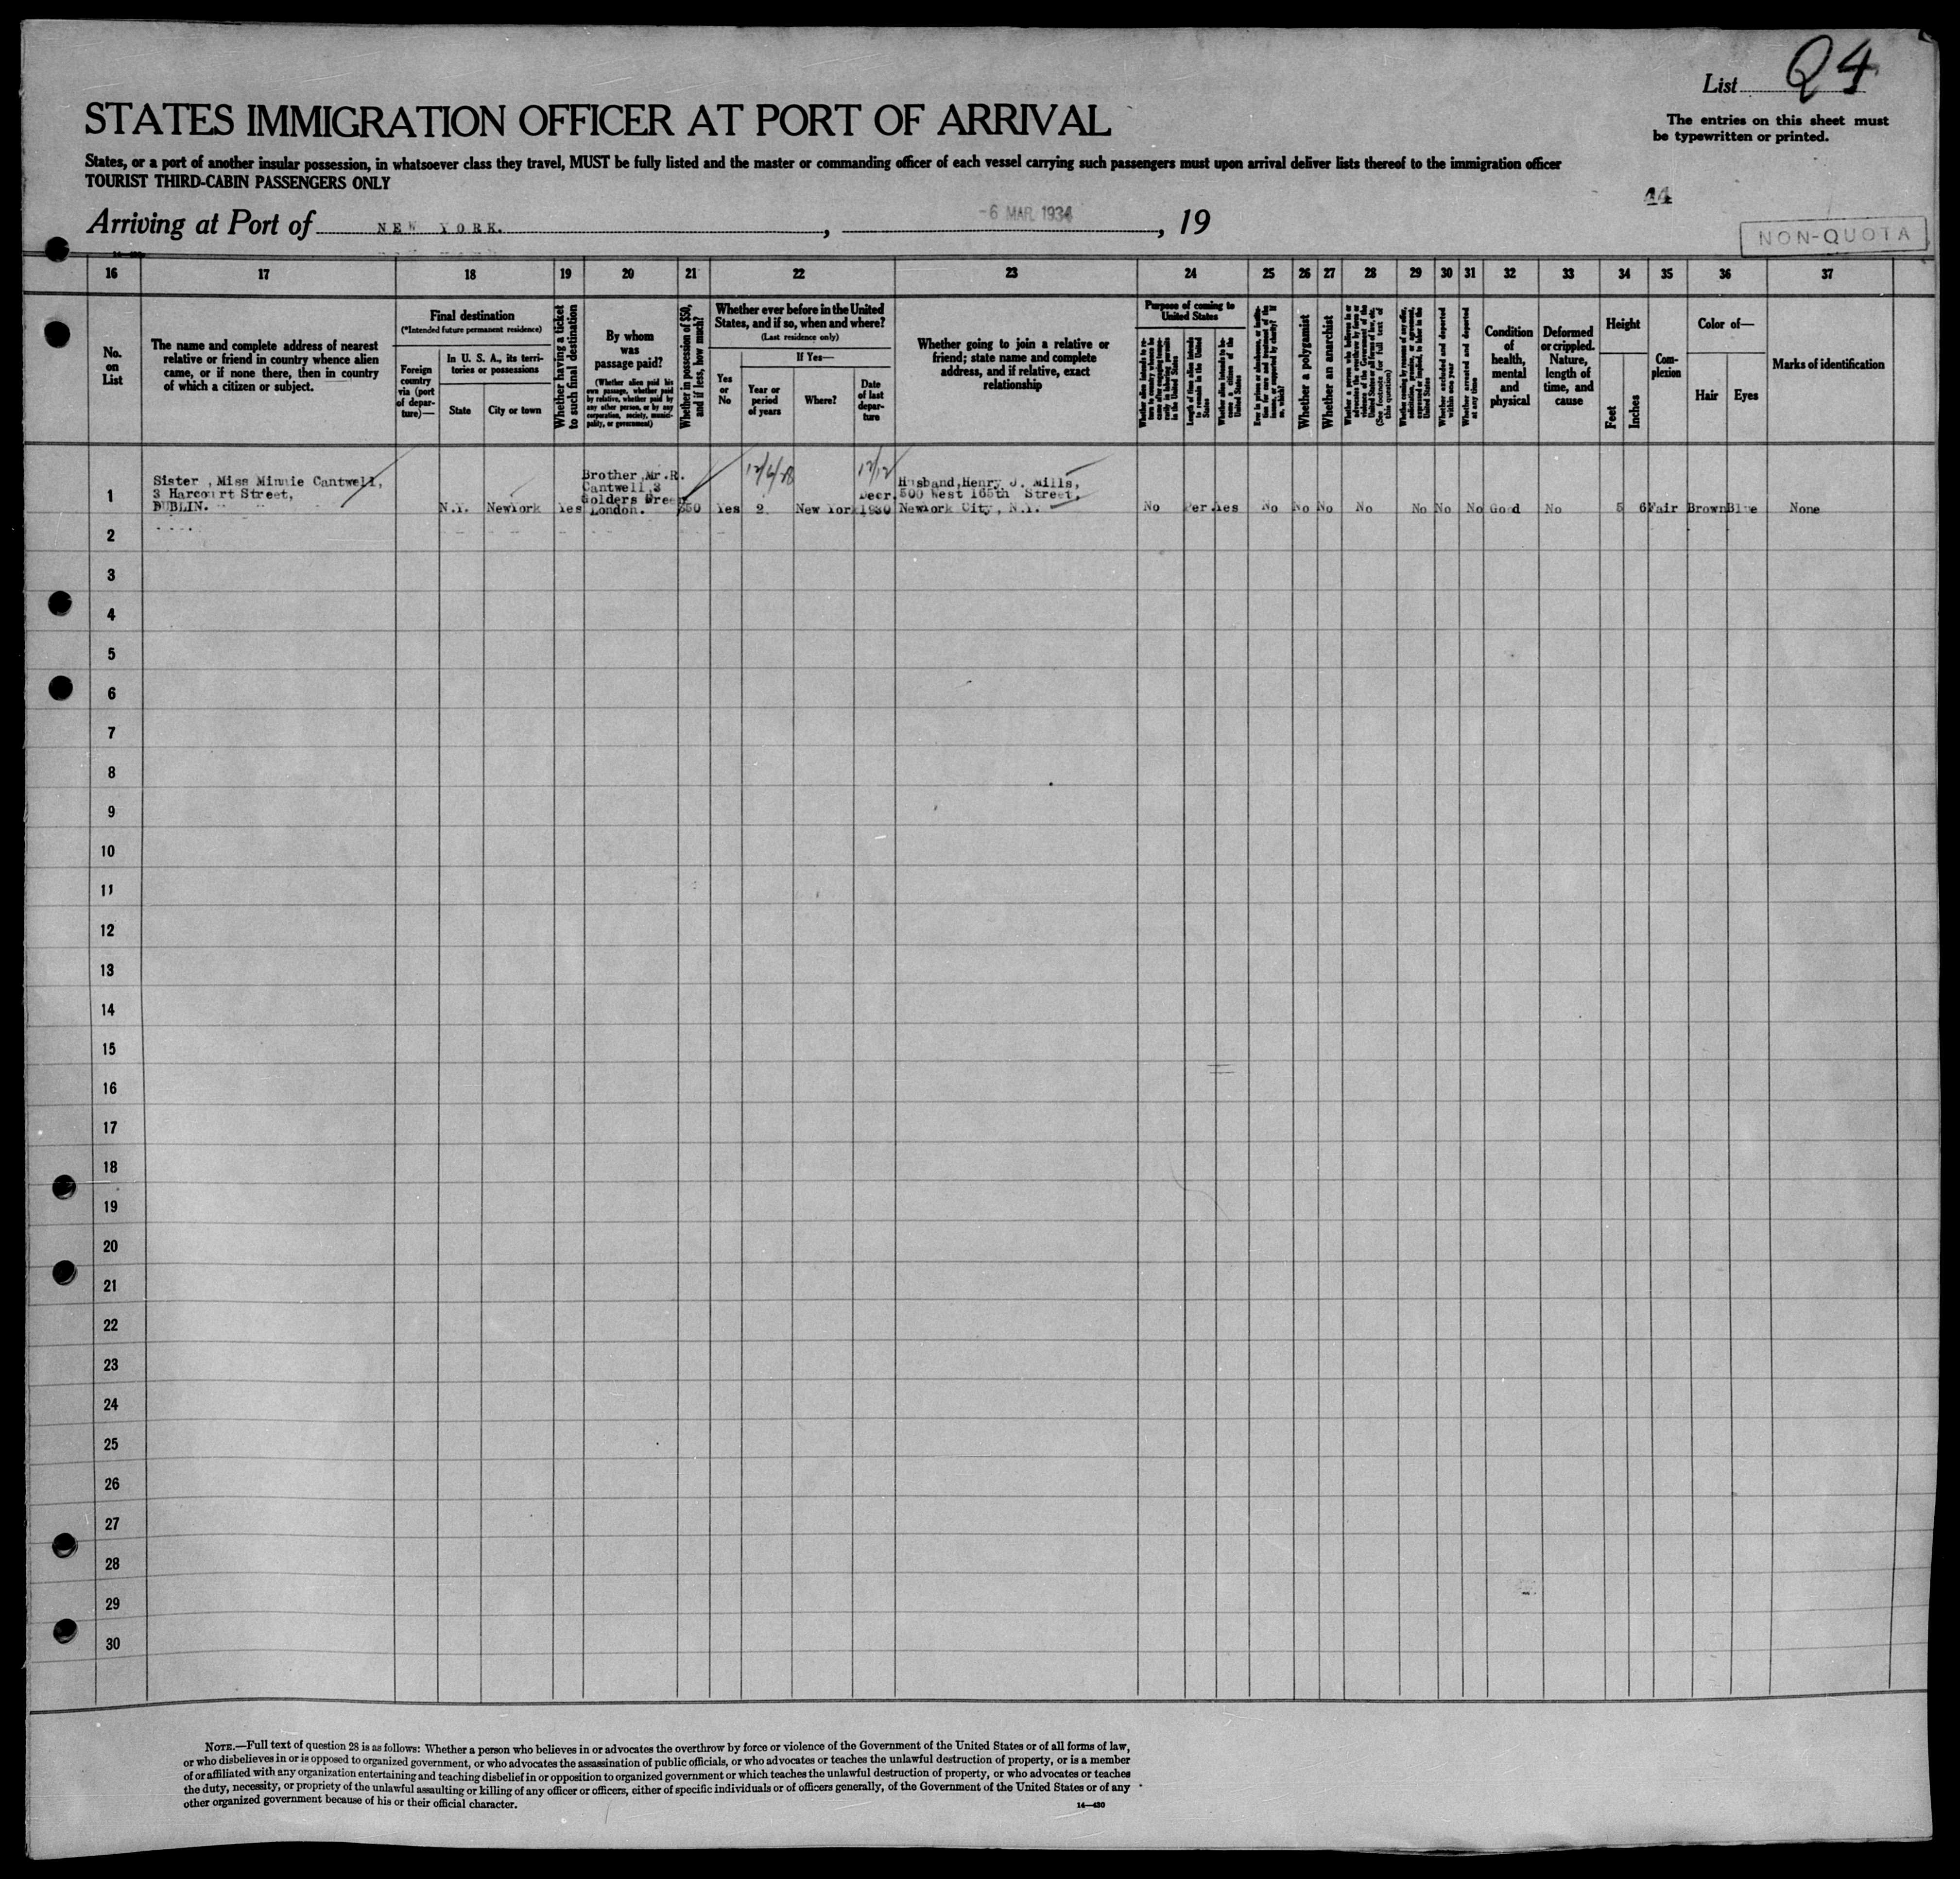 List Q4
The entries on this sheet must
be typewritten or printed.
STATES IMMIGRATION OFFICER AT PORT OF ARRIVAL
States, or a port of another insular possession, in whatsoever class they travel, MUST be fully listed and the master or commanding officer of each vessel carrying such passengers must upon arrival deliver lists thereof to the immigration officer
TOURIST THIRD-CABIN PASSENGERS ONLY
44
Arriving at Port of NEW YORK. , -6 MAR 1934 , 19
NON-QUOTA
16 17 18 19 20 21 22 23 24 25 26 27 28 29 30 31 32 33 34 35 36 37
No.
on
List
The name and complete address of nearest
relative or friend in country whence alien
came, or if none there, then in country
of which a citizen or subject.
Final destination
(*Intended future permanent residence)
Foreign
country
via (port
of depar-
ture)—
In U. S. A., its terri-
tories or possessions
State
City or town
Whether having a ticket
to such final destination
By whom
was
passage paid?
(Whether alien paid his
own passage, whether paid
by relative, whether paid by
any other person, or by any
corporation, society, munici-
pality, or government)
Whether in possession of $50,
and if less, how much?
Whether ever before in the United
States, and if so, when and where?
(Last residence only)
Yes
or
No
If Yes—
Year or
period
of years
Where?
Date
of last
depar-
ture
Whether going to join a relative or
friend; state name and complete
address, and if relative, exact
relationship
Purpose of coming to
United States
Length of time alien intends
to remain in the United
States
Whether alien intends to be-
come a citizen of the
United States
Whether a polygamist
Whether an anarchist
Whether excluded and deported
within one year
Whether arrested and deported
at any time
Condition
of
health,
mental
and
physical
Deformed
or crippled.
Nature,
length of
time, and
cause
Height
Feet
Inches
Com-
plexion
Color of—
Hair
Eyes
Marks of identification
1
Sister, Miss Minnie Cantwell,
3 Harcourt Street,
DUBLIN.
N.Y.
NewYork
Yes
Brother, Mr. R.
Cantwell, 3
Golders Green
London.
$50
Yes
12/6/28
2
New York
12/12
Decr.
1930
Husband, Henry J. Mills,
500 West 165th Street,
NewYork City, N.Y.
No Per Yes No No No No No No No Good No 5 6 Fair Brown Blue None
2
3
4
5
6
7
8
9
10
11
12
13
14
15
16
17
18
19
20
21
22
23
24
25
26
27
28
29
30
NOTE.—Full text of question 28 is as follows: Whether a person who believes in or advocates the overthrow by force or violence of the Government of the United States or of all forms of law,
or who disbelieves in or is opposed to organized government, or who advocates the assassination of public officials, or who advocates or teaches the unlawful destruction of property, or is a member
of or affiliated with any organization entertaining and teaching disbelief in or opposition to organized government or which teaches the unlawful destruction of property, or who advocates or teaches
the duty, necessity, or propriety of the unlawful assaulting or killing of any officer or officers, either of specific individuals or of officers generally, of the Government of the United States or of any
other organized government because of his or their official character.
14—430